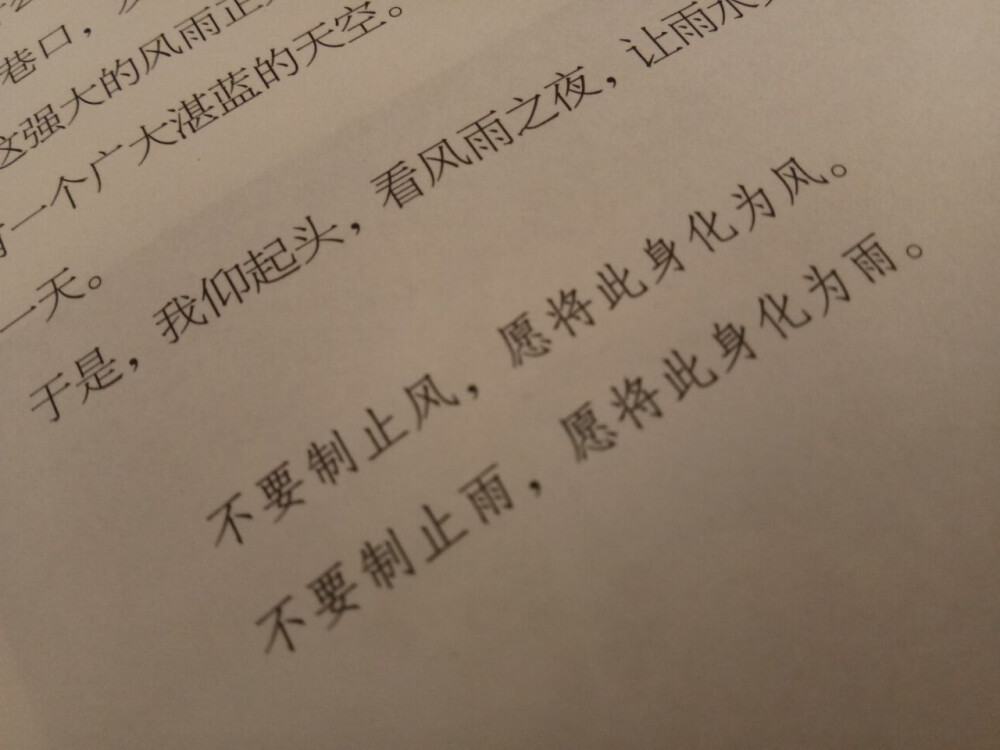 巷口，
这强大的风雨正
有一个广大湛蓝的天空。
一天。
于是，我仰起头，看风雨之夜，让雨水
不要制止风，愿将此身化为风。
不要制止雨，愿将此身化为雨。